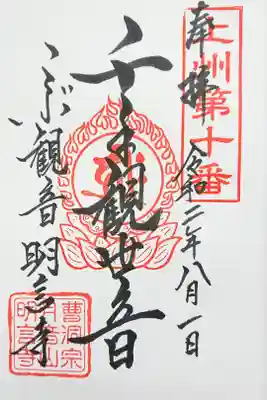 上州第十番
奉拝
令和二年八月一日
千手観世音
こぶ観音 明言寺
曹洞宗
明言寺